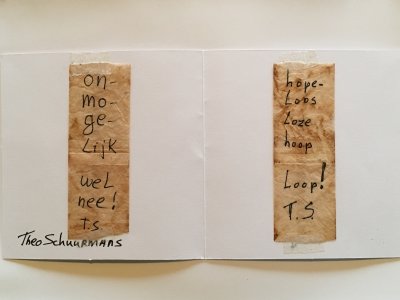 on-
mo-
ge-
Lijk
weL
nee!
T.S.
Theo Schuurmans
hope-
Loos
Loze
hoop
Loop!
T.S.